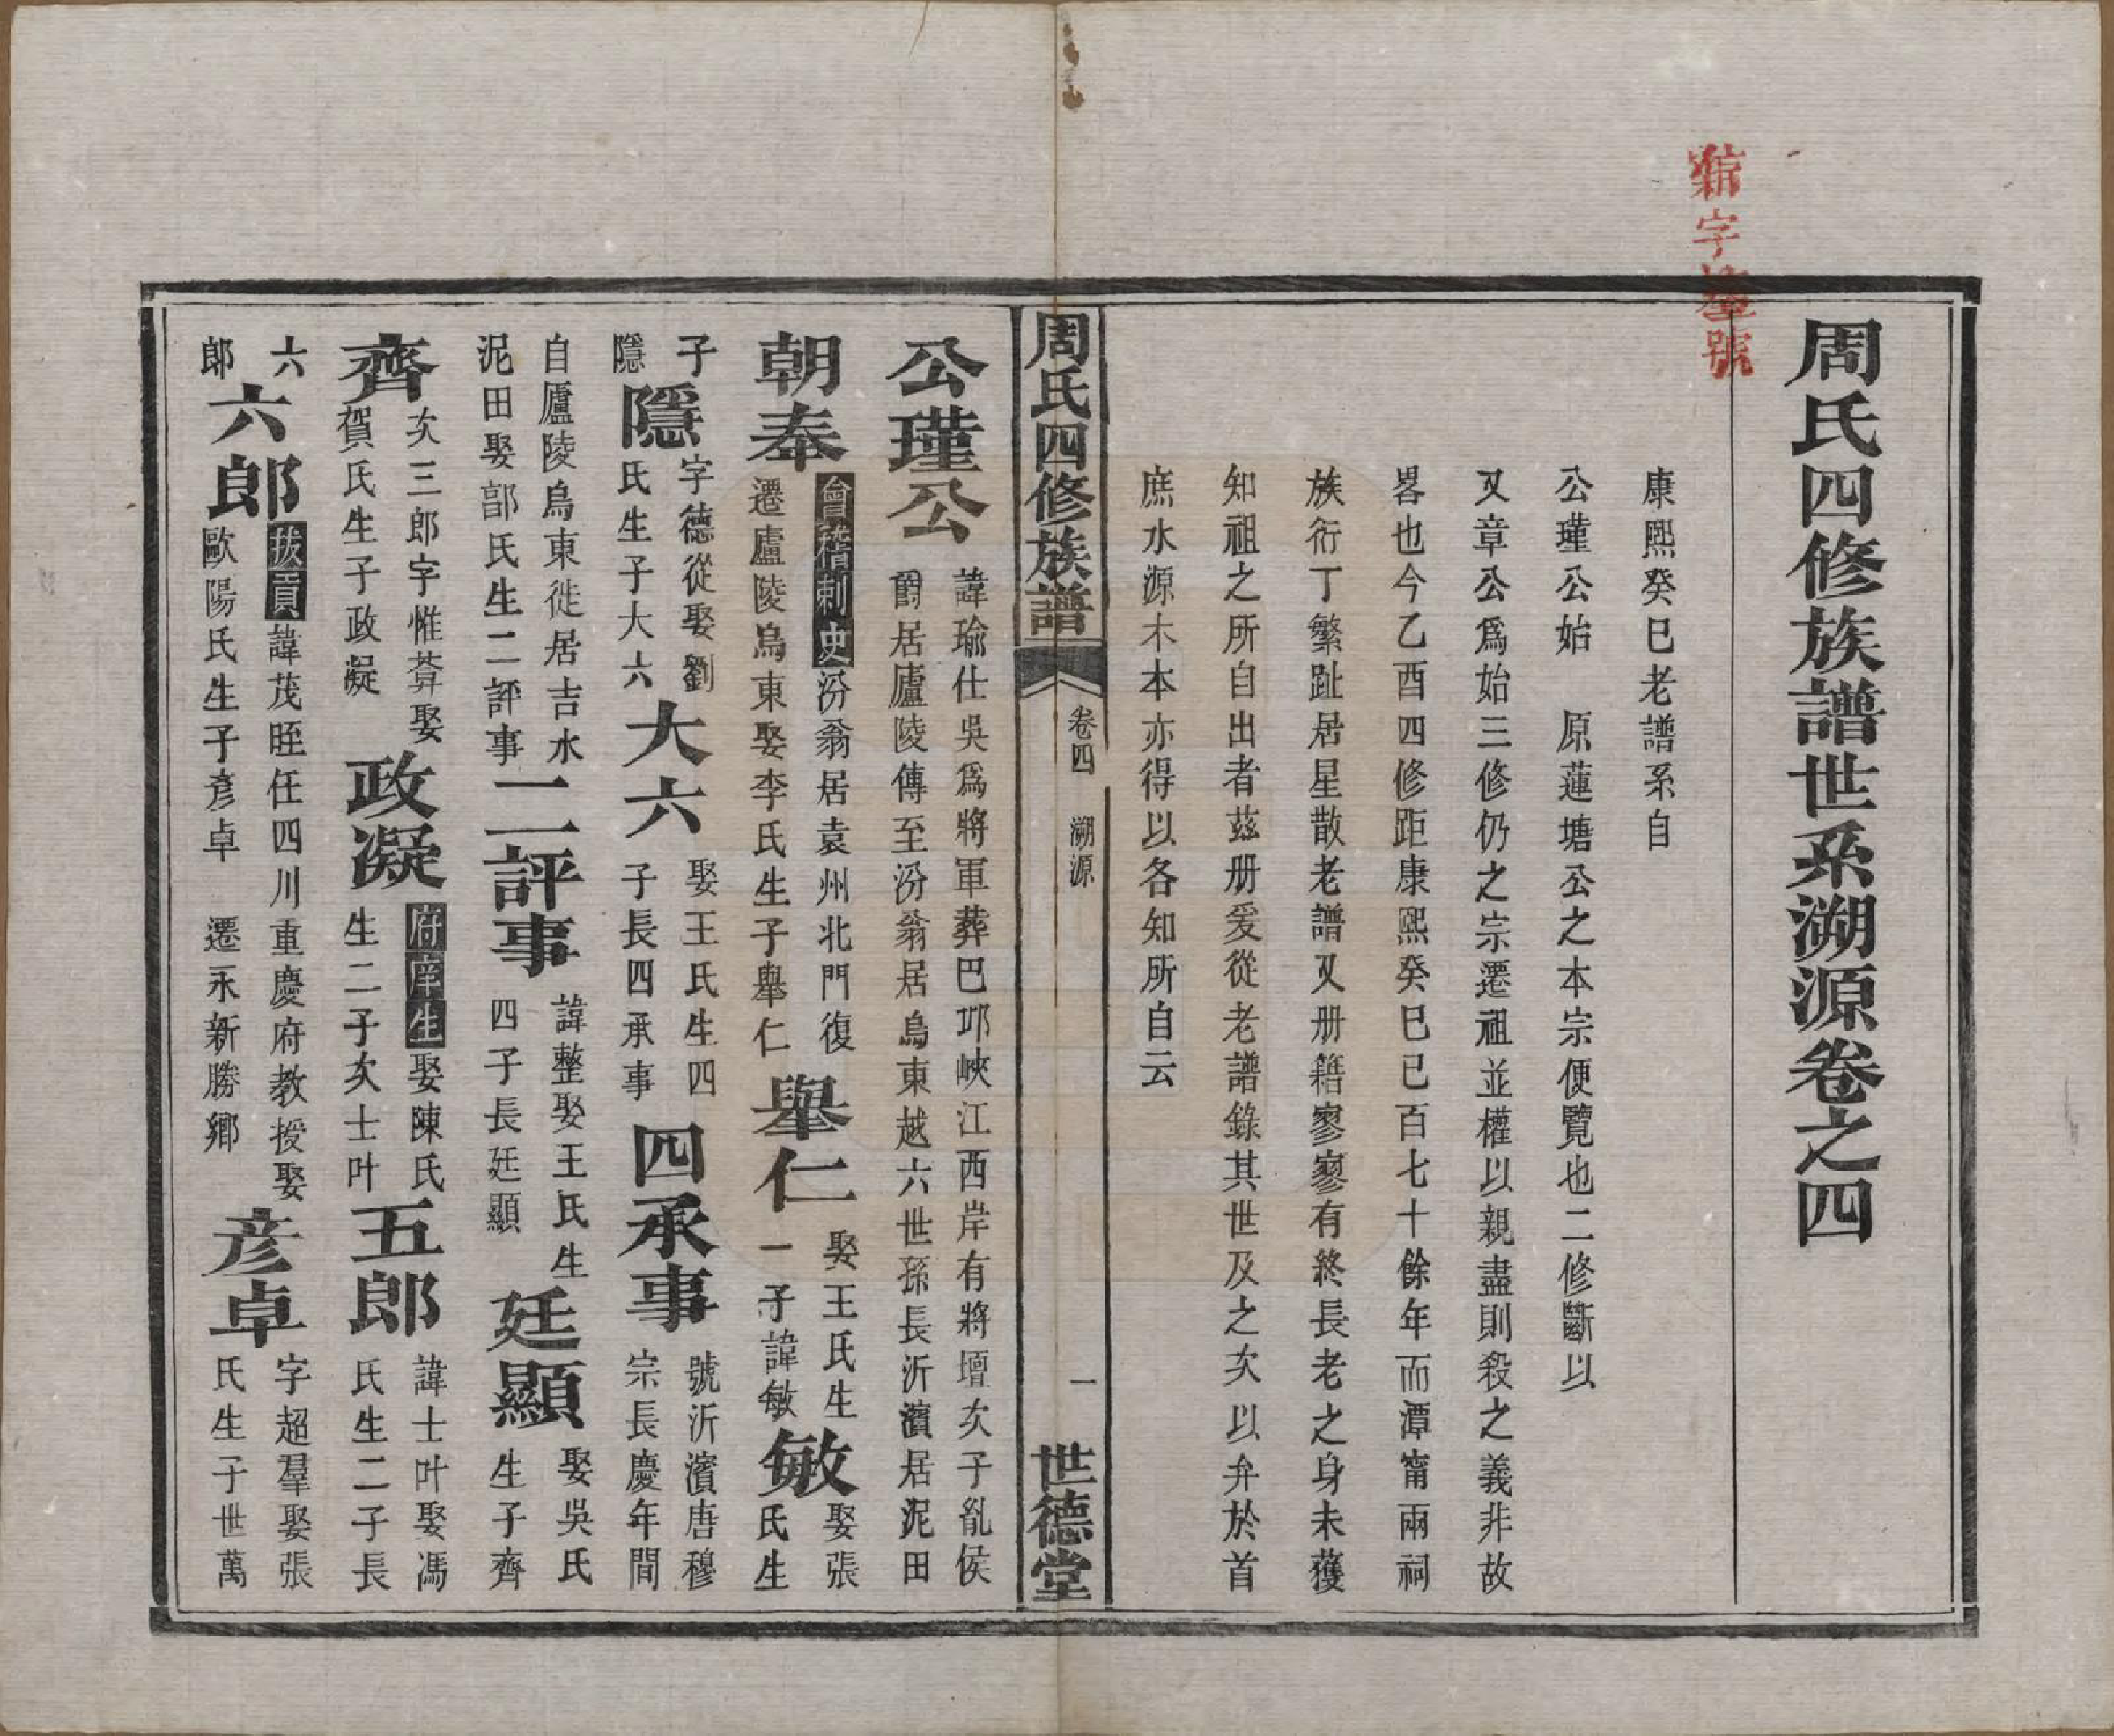 周氏四修族譜世系溯源卷之四
字
號
康熙癸巳老譜系自
公瑾公始　原蓮塘公之本宗便覽也二修斷以
又章公爲始三修仍之宗遷祖並權以親盡則殺之義非故
畧也今乙酉四修距康熙癸巳已百七十餘年而潭甯兩祠
族衍丁繁趾居星散老譜又册籍寥寥有終長老之身未獲
知祖之所自出者茲册爰從老譜錄其世及之次以弁於首
庶水源木本亦得以各知所自云
周氏四修族譜　卷四　溯源　一　世德堂
公瑾公
諱瑜仕吳爲將軍葬巴邱峽江西岸有將壇次子胤侯
爵居廬陵傳至汾翁居烏東越六世孫長沂濱居泥田
朝奉
會稽刺史汾翁居袁州北門復
遷廬陵烏東娶李氏生子舉仁
舉仁
娶王氏生
一子諱敏
敏
娶張
氏生
子
隱
隱
字德從娶劉
氏生子大六
大六
娶王氏生四
子長四承事
四承事
號沂濱唐穆
宗長慶年間
自廬陵烏東徙居吉水
泥田娶郭氏生二評事
二評事
諱整娶王氏生
四子長廷顯
廷顯
娶吳氏
生子齊
齊
次三郎字惟莽娶
賀氏生子政凝
政凝
府庠生娶陳氏
生二子次士叶
五郎
諱士叶娶馮
氏生二子長
六
郎
六郎
拔貢諱茂晊任四川重慶府教授娶
歐陽氏生子彥卓　遷永新勝鄉
彥卓
字超羣娶張
氏生子世萬